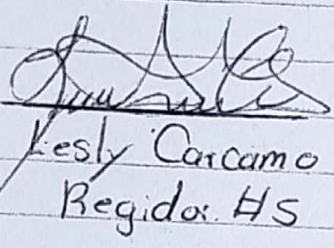 Lesly Carcamo
Regidor HS